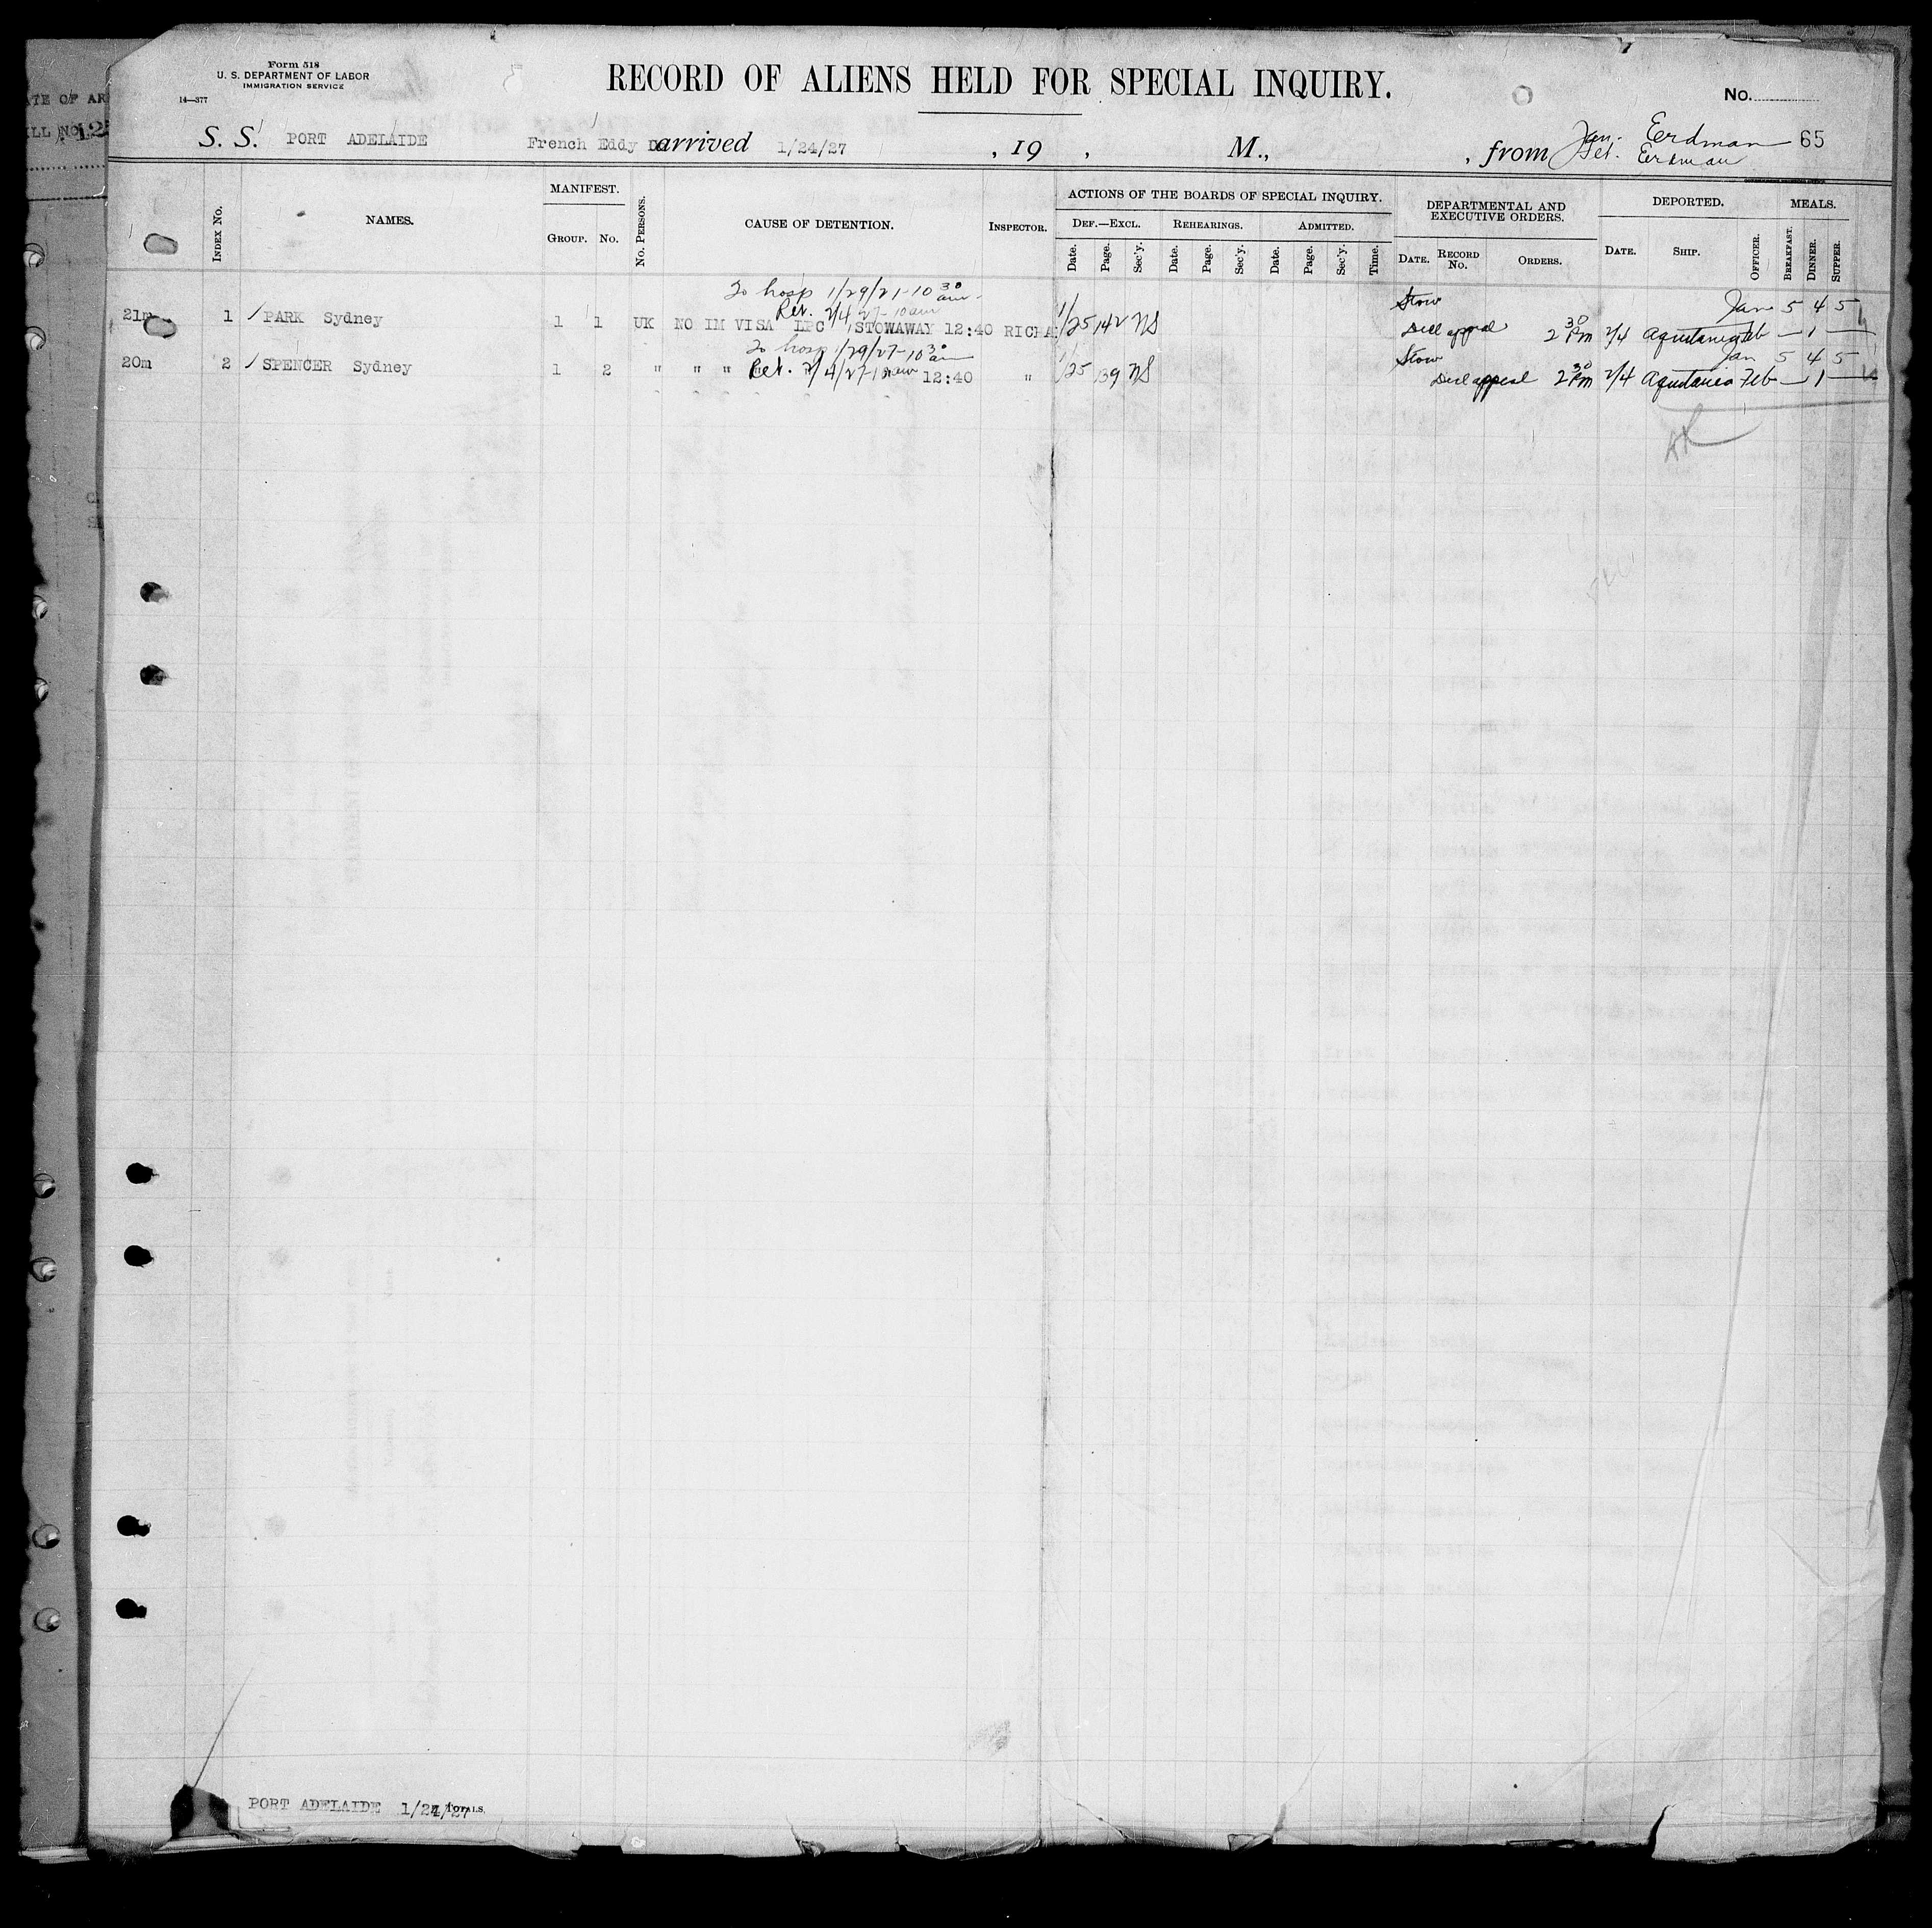 Form 518
U. S. DEPARTMENT OF LABOR
IMMIGRATION SERVICE
14—377
RECORD OF ALIENS HELD FOR SPECIAL INQUIRY.
No.
S. S. PORT ADELAIDE French Eddy arrived 1/24/27 , 19 , M., , from Jan. Eerdman 65
Eerdman
ATE OF AR
ILL NO. 12
Index No. NAMES. MANIFEST. Group. No. No. Persons. CAUSE OF DETENTION. Inspector.
ACTIONS OF THE BOARDS OF SPECIAL INQUIRY. Def.—Excl. Date. Page. Sec'y. Rehearings. Date. Page. Sec'y. Admitted. Date. Page. Sec'y. Time.
DEPARTMENTAL AND EXECUTIVE ORDERS. Date. Record No. Orders.
DEPORTED. Date. Ship. Officer. MEALS. Breakfast. Dinner. Supper.
To hosp 1/29/27-10 30 am Stow Jan 5 4 5
Ret. 2/4/27-10am
21m 1 / PARK Sydney 1 1 UK NO IM VISA LPC STOWAWAY 12:40 RICHA 1/25 142 NS Decl appeal 2 30 Pm 2/4 Aquitania Feb — 1 —
To hosp 1/29/27-10 30 am Stow Jan 5 4 5
20m 2 / SPENCER Sydney 1 2 " " " Ret. 2/4/27-10am 12:40 " 1/25 139 NS Decl appeal 2 30 Pm 2/4 Aquitania Feb — 1 —
PORT ADELAIDE 1/24/27 Totals.